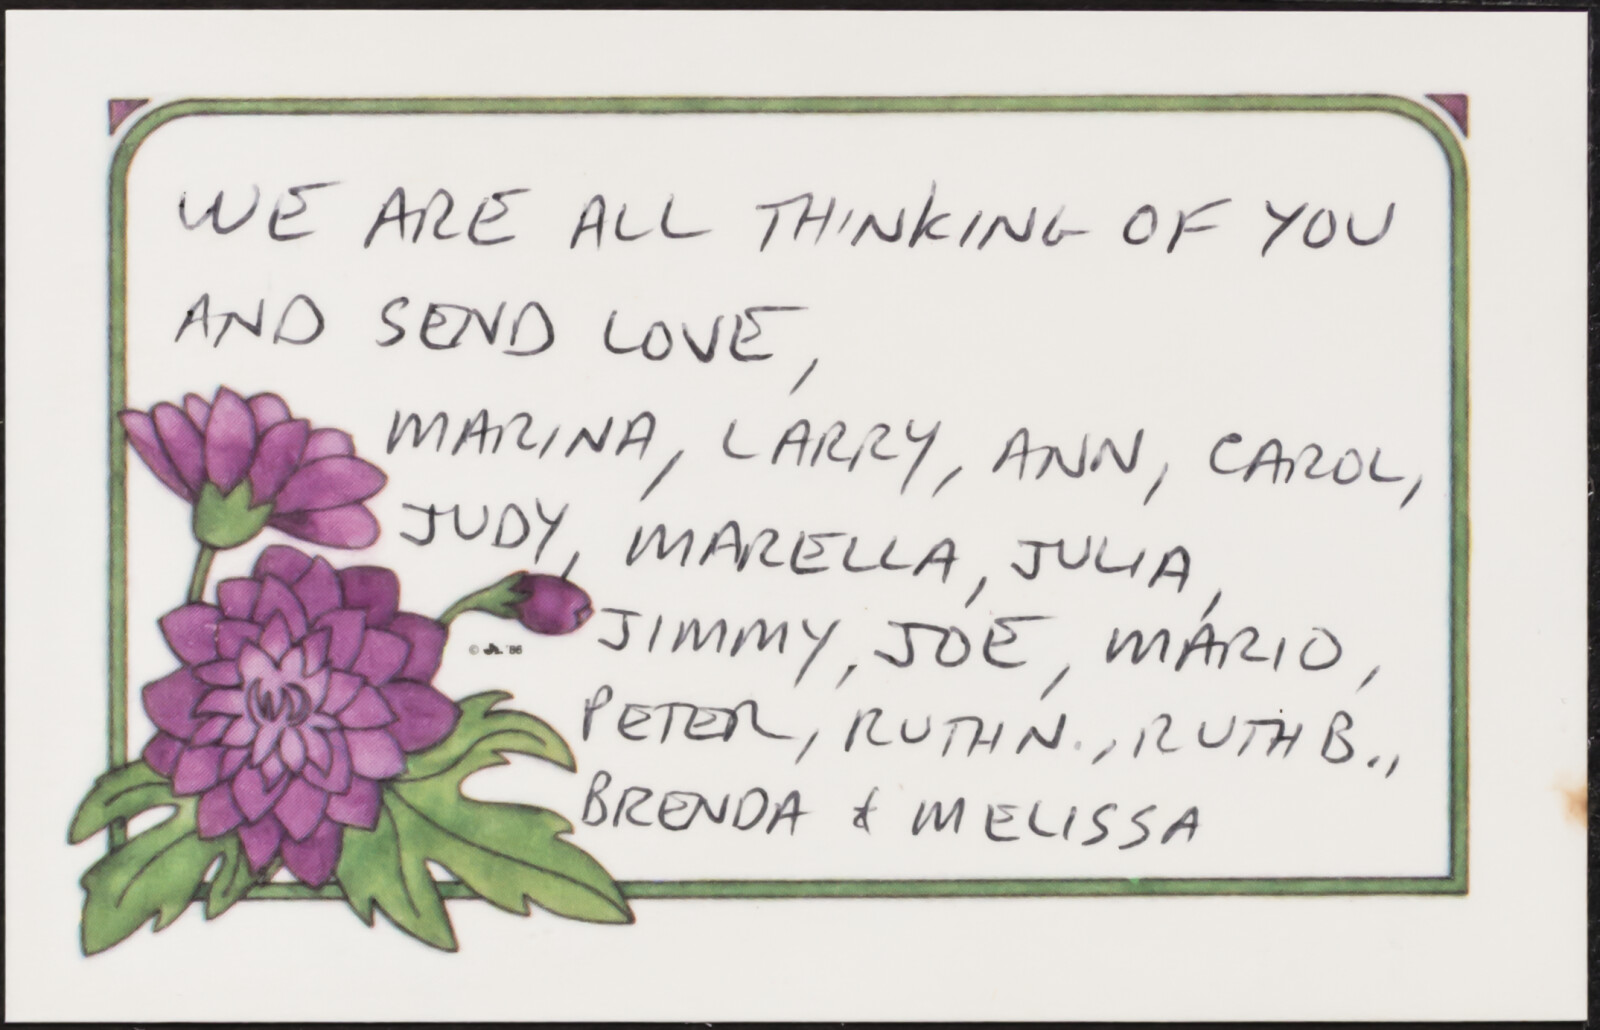 WE ARE ALL THINKING OF YOU
AND SEND LOVE,
MARINA, LARRY, ANN, CAROL,
JUDY, MARELLA, JULIA,
JIMMY, JOE, MARIO,
PETER, RUTH N., RUTH B.,
BRENDA & MELISSA
© Jr. '86